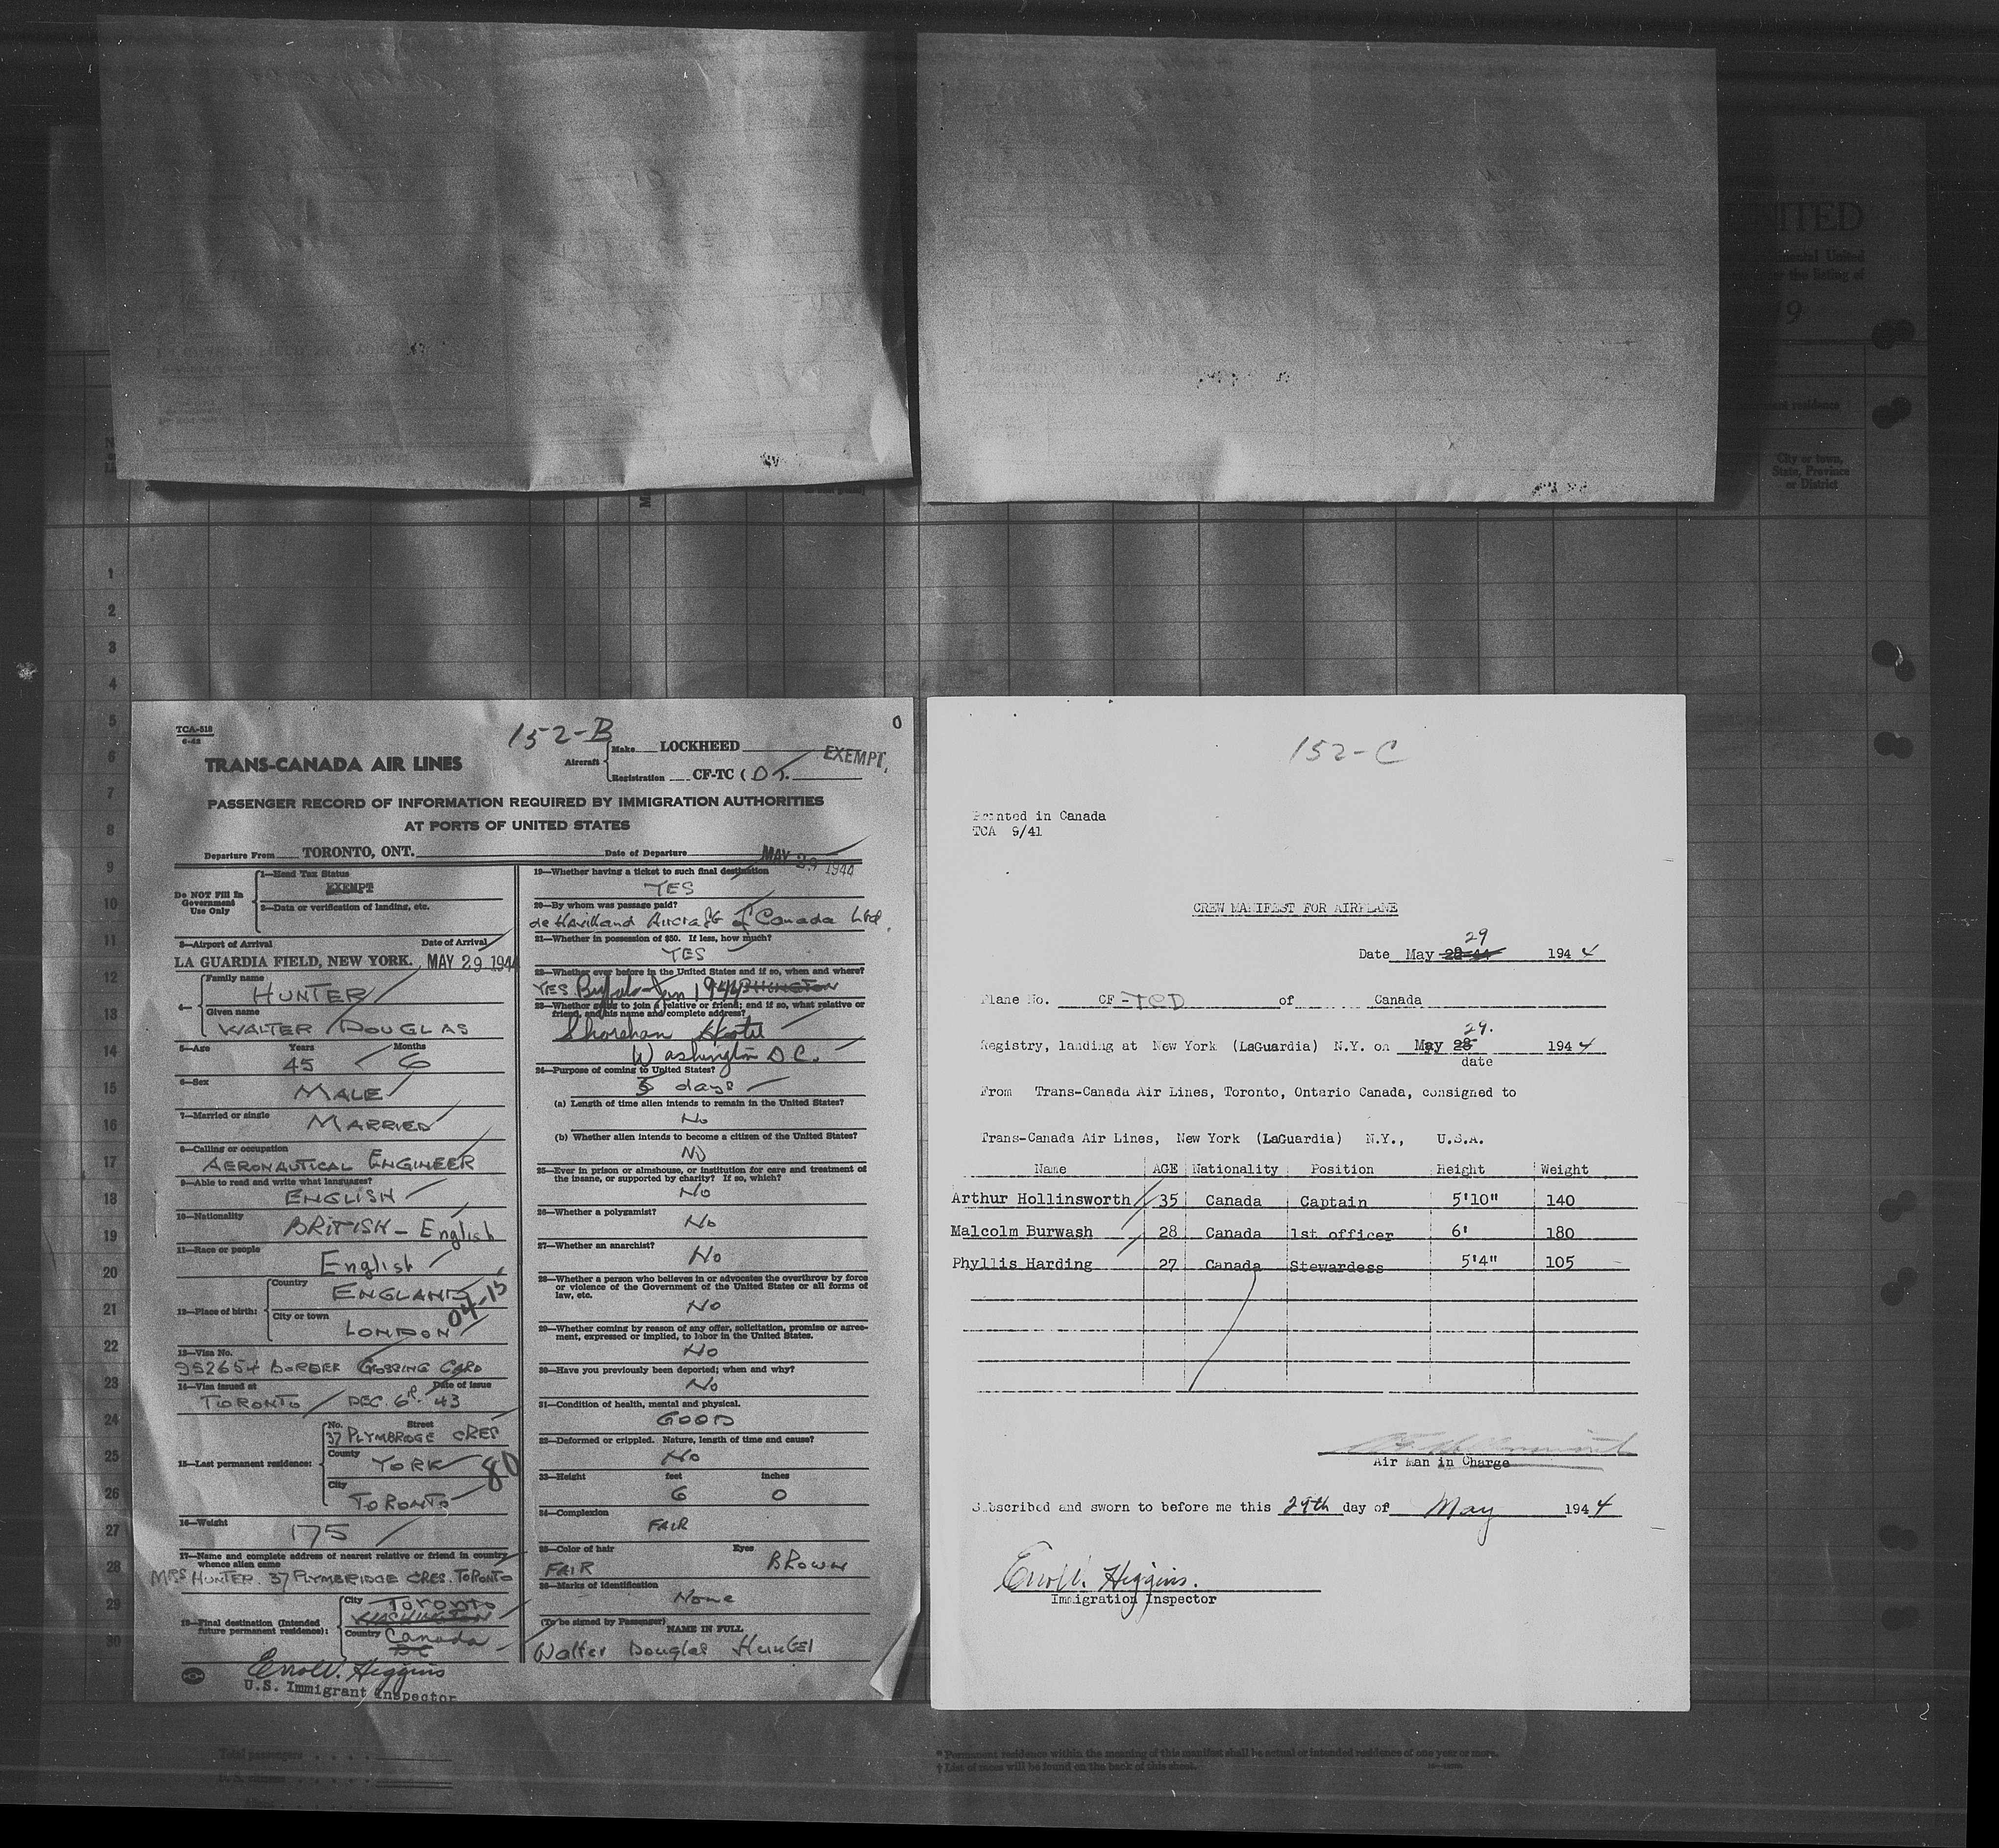 UNITED
9
City or town,
State, Province
or District
1
2
3
4
5
6
7
8
9
10
11
12
13
14
15
16
17
18
19
20
21
22
23
24
25
26
27
28
29
30
TCA-518
152-B
0
TRANS-CANADA AIR LINES
Aircraft
Make LOCKHEED
EXEMPT.
Registration CF-TC (D).
PASSENGER RECORD OF INFORMATION REQUIRED BY IMMIGRATION AUTHORITIES
AT PORTS OF UNITED STATES
Departure From TORONTO, ONT. Date of Departure MAY 29 1944
Do NOT Fill In
Government
Use Only
1—Head Tax Status
EXEMPT
2—Data or verification of landing, etc.
3—Airport of Arrival Date of Arrival
LA GUARDIA FIELD, NEW YORK. MAY 29 1944
4—
Family name
HUNTER
Given name
WALTER DOUGLAS
5—Age Years Months
45 6
6—Sex
MALE
7—Married or single
MARRIED
8—Calling or occupation
AERONAUTICAL ENGINEER
9—Able to read and write what languages?
ENGLISH
10—Nationality
BRITISH - English
11—Race or people
English
12—Place of birth:
Country
ENGLAND
04-15
City or town
LONDON
13—Visa No.
952654 BORDER CROSSING CARD
14—Visa issued at Date of issue
TORONTO DEC. 6th. 43
15—Last permanent residence:
No. Street
37 PLYMBRIDGE CRES
County
YORK
80
City
TORONTO
16—Weight
175
17—Name and complete address of nearest relative or friend in country
whence alien came
MRS HUNTER. 37 PLYMBRIDGE CRES. TORONTO
18—Final destination (Intended
future permanent residence):
City Toronto
WASHINGTON
Country Canada
DC
Errol W. Higgins
U.S. Immigrant Inspector
19—Whether having a ticket to such final destination
YES
20—By whom was passage paid?
de Havilland Aircraft of Canada Ltd.
21—Whether in possession of $50. If less, how much?
YES
22—Whether ever before in the United States and if so, when and where?
YES Buffalo - Jan 1944 WASHINGTON
23—Whether going to join a relative or friend; and if so, what relative or
friend, and his name and complete address?
Shoreham Hotel
Washington D.C.
24—Purpose of coming to United States?
3 days
(a) Length of time alien intends to remain in the United States?
No
(b) Whether alien intends to become a citizen of the United States?
NO
25—Ever in prison or almshouse, or institution for care and treatment of
the insane, or supported by charity? If so, which?
No
26—Whether a polygamist?
No
27—Whether an anarchist?
No
28—Whether a person who believes in or advocates the overthrow by force
or violence of the Government of the United States or all forms of
law, etc.
No
29—Whether coming by reason of any offer, solicitation, promise or agree-
ment, expressed or implied, to labor in the United States.
No
30—Have you previously been deported; when and why?
No
31—Condition of health, mental and physical.
GOOD
32—Deformed or crippled. Nature, length of time and cause?
No
33—Height feet inches
6 0
34—Complexion
FAIR
35—Color of hair Eyes
FAIR BROWN
36—Marks of Identification
None
(To be signed by Passenger) NAME IN FULL
Walter Douglas Hunter
152-C
Printed in Canada
TCA 9/41
CREW MANIFEST FOR AIRPLANE
29
Date May 28 44 1944
Plane No. CF-TCD of Canada
29.
Registry, landing at New York (LaGuardia) N.Y. on May 28 1944
date
From Trans-Canada Air Lines, Toronto, Ontario Canada, consigned to
Trans-Canada Air Lines, New York (LaGuardia) N.Y., U.S.A.
Name AGE Nationality Position Height Weight
Arthur Hollinsworth 35 Canada Captain 5'10" 140
Malcolm Burwash 28 Canada 1st officer 6' 180
Phyllis Harding 27 Canada Stewardess 5'4" 105
Air Man in Charge
Subscribed and sworn to before me this 29th day of May 1944
Errol W. Higgins.
Immigration Inspector
Total passengers
* Permanent residence within the meaning of this manifest shall be actual or intended residence of one year or more.
† List of races will be found on the back of this sheet.
2